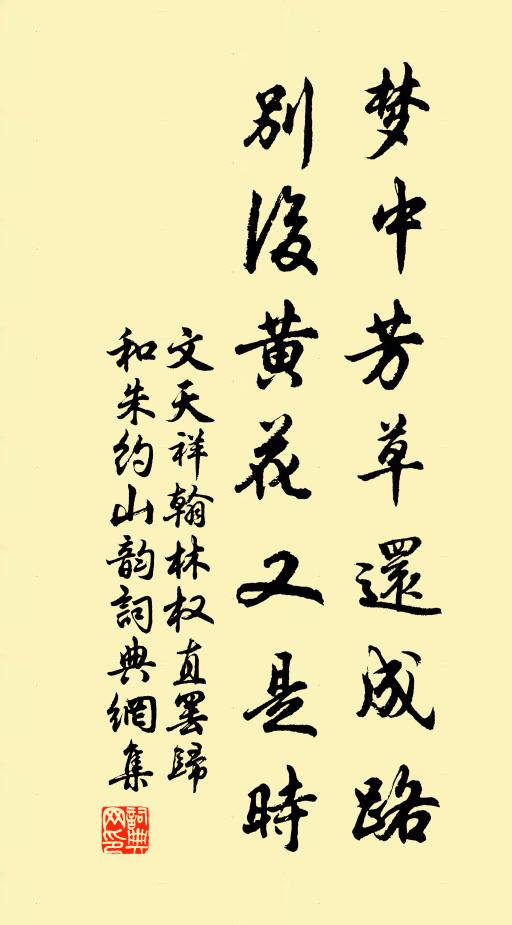 梦中芳草還成路
別後黄花又是時
文天祥翰林权直罢歸
和朱约山韵詞典網集
詞典網印